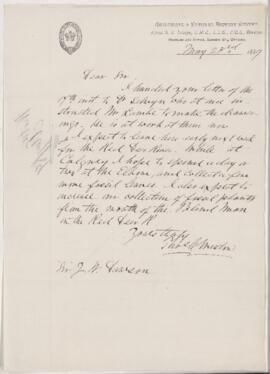 GEOLOGICAL & NATURAL HISTORY SURVEY
May 22nd 1889
Dear Sir
I handed your letter of the
17th inst to Dr Selwyn who at once in-
structed Mr Lambe to make the draw-
ings, he is at work at them now
I expect to leave here early next week
for the Red Deer River. While at
Calgary I hope to spend a day or
two at the Elbow, and collect a few
more fossil leaves. I also expect to
increase our collection of fossil plants
from the mouth of the Blind Man
in the Red Deer R.
Yours truly
Thos C Weston
Sir J. W. Dawson